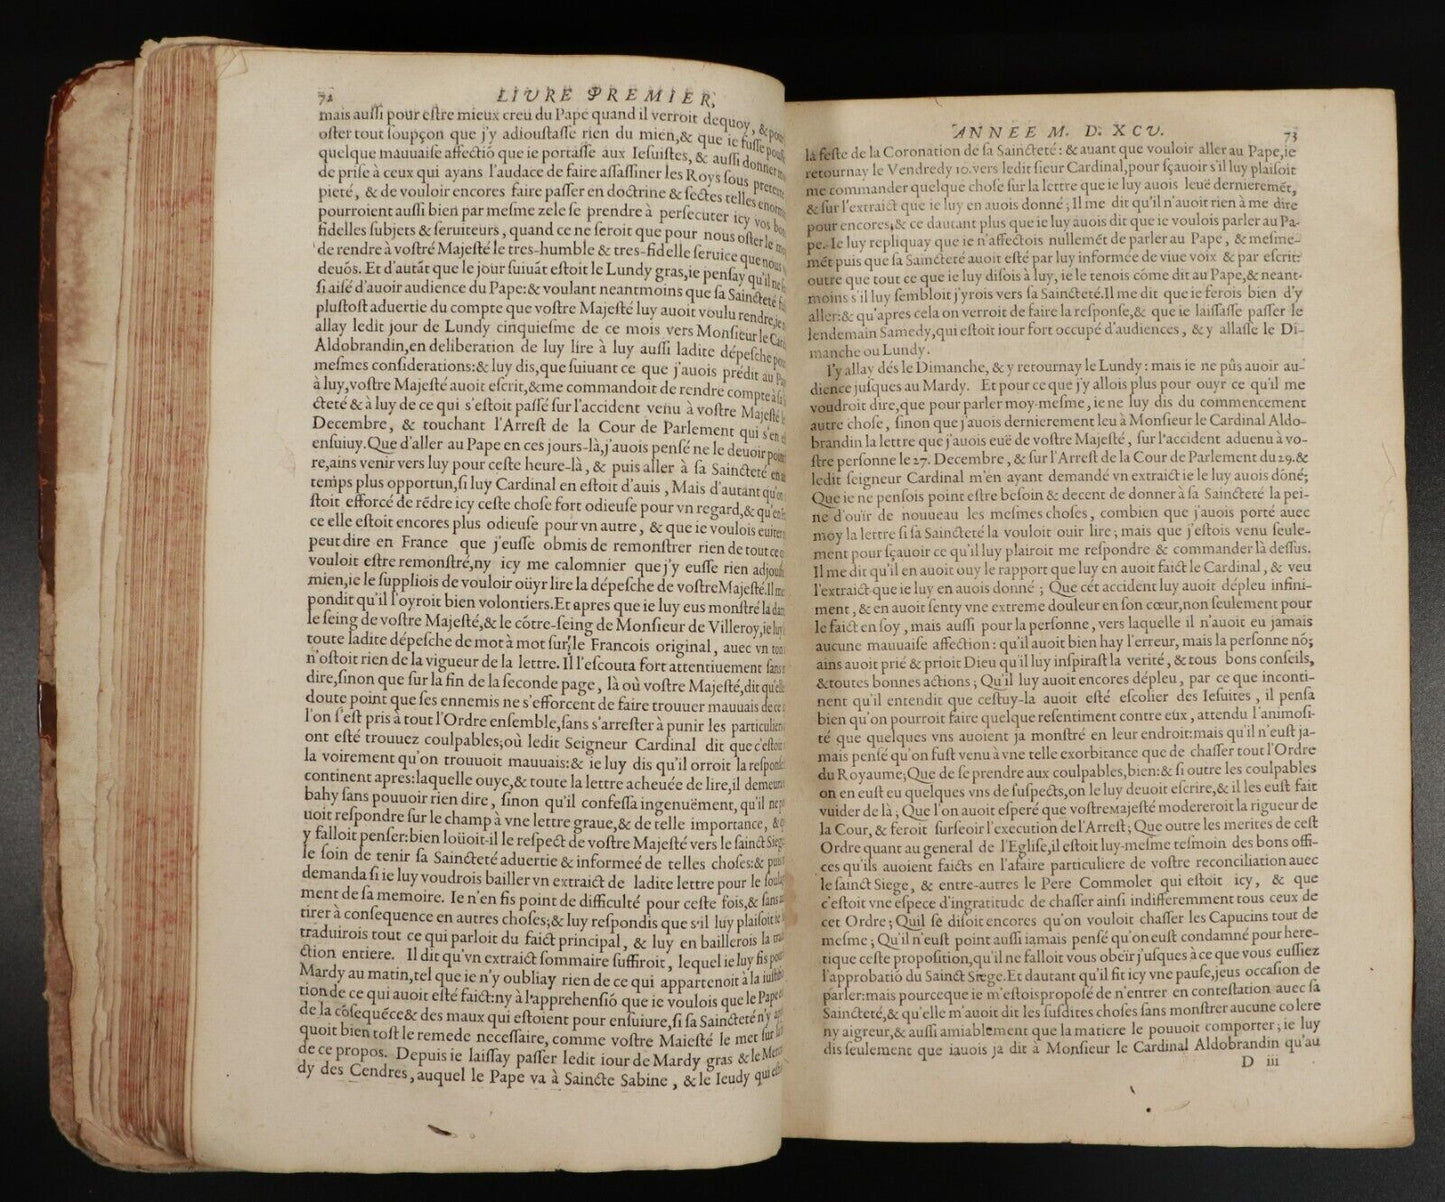 72
LIVRE PREMIER,
mais aussi pour estre mieux creu du Pape quand il verroit dequoy, & pour
oster tout soupçon que j'y adioustasse rien du mien,& que ie fusse poussé
quelque mauuaise affectiõ que ie portasse aux Iesuistes, & aussi donner
de prise à ceux qui ayans l'audace de faire assassiner les Roys sous pretexte
pieté, & de vouloir encores faire passer en doctrine & sectes telles
pourroient aussi bien par mesme zele se prendre à persecuter icy vos
fidelles subjets & seruiteurs, quand ce ne seroit que pour nous oster le
de rendre à vostré Majesté le tres-humble & tres-fidelle seruice que nous
deuõs. Et d'autãt que le jour suiuãt estoit le Lundy gras,ie pensay qu'il
si aisé d'auoir audience du Pape:& voulant neantmoins que sa Saincteté
plustost aduertie du compte que vostre Majesté luy auoit voulu rendre,
allay ledit jour de Lundy cinquiesme de ce mois vers Monsieur le
Aldobrandin,en deliberation de luy lire à luy aussi ladite dépesche
mesmes considerations:& luy dis,que suiuant ce que j'auois prédit au
à luy,vostre Majesté auoit escrit,&me commandoit de rendre compte
cteté & à luy de ce qui s'estoit passé sur l'accident venu à vostre Majesté
Decembre, & touchant l'Arrest de la Cour de Parlement qui s'en
ensuiuy.Que d'aller au Pape en ces jours-là,j'auois pensé ne le deuoir
re,ains venir vers luy pour ceste heure-là, & puis aller à sa Saincteté
temps plus opportun,si luy Cardinal en estoit d'auis, Mais d'autant
stoit efforcé de rẽdre icy ceste chose fort odieuse pour vn regard,&
ce elle estoit encores plus odieuse pour vn autre, & que ie voulois
peut dire en France que j'eusse obmis de remonstrer rien de tout ce
vouloit estre remonstré,ny icy me calomnier que j'y eusse rien
mien,ie le suppliois de vouloir oüyr lire la dépesche de vostre Majesté.Il
pondit qu'il l'oyroit bien volontiers.Et apres que ie luy eus monstré la
le seing de vostre Majesté,& le cõtre-seing de Monsieur de Villeroy,ie
toute ladite dépesche de mot à mot sur le Francois original, auec vn
n'ostoit rien de la vigueur de la lettre. Il l'escouta fort attentiuement
dire,sinon que sur la fin de la seconde page, là où vostre Majesté,dit
doute point que ses ennemis ne s'efforcent de faire trouuer mauuais de
l'on s'est pris à tout l'Ordre ensemble,sans s'arrester à punir les
ont esté trouuez coulpables;où ledit Seigneur Cardinal dit que
la voirement qu'on trouuoit mauuais:& ie luy dis qu'il orroit la
continent apres:laquelle ouye,& toute la lettre acheuée de lire,il
bahy sans pouuoir rien dire, sinon qu'il confessa ingenuëment, qu'il
uoit respondre sur le champ à vne lettre graue,& de telle importance,
y falloit penser:bien loüoit-il le respect de vostre Majesté vers le sainct
le soin de tenir sa Saincteté aduertie & informeé de telles choses:&
demanda si ie luy voudrois bailler vn extraict de ladite lettre pour le
ment de sa memoire. Ie n'en fis point de difficulté pour ceste fois,& sans
tirer à consequence en autres choses;& luy respondis que s'il luy plaisoit
traduirois tout ce qui parloit du faict principal, & luy en baillerois la
ction entiere. Il dit qu'vn extraict sommaire suffiroit, lequel ie luy fis
Mardy au matin,tel que ie n'y oubliay rien de ce qui appartenoit à la
tion de ce qui auoit esté faict:ny à l'apprehensiõ que ie voulois que le Pape
de la cõsequẽce& des maux qui estoient pour ensuiure,si sa Saincteté n'y
quoit bien tost le remede necessaire, comme vostre Maiesté le met sur
de ce propos. Depuis ie laissay passer ledit iour de Mardy gras & le
dy des Cendres, auquel le Pape va à Saincte Sabine, & le Ieudy qui
ANNEE M. D. XCV.
73
la feste de la Coronation de sa Saincteté: & auant que vouloir aller au Pape,ie
retournay le Vendredy 10.vers ledit sieur Cardinal,pour sçauoir s'il luy plaisoit
me commander quelque chose sur la lettre que ie luy auois leuë dernieremẽt,
& sur l'extraict que ie luy en auois donné; Il me dit qu'il n'auoit rien à me dire
pour encores,& ce dautant plus que ie luy auois dit que ie voulois parler au Pa-
pe. Ie luy repliquay que ie n'affectois nullemẽt de parler au Pape, & mesme-
mẽt puis que sa Saincteté auoit esté par luy informée de viue voix & par escrit:
outre que tout ce que ie luy disois à luy, ie le tenois cõme dit au Pape,& neant-
moins s'il luy sembloit j'yrois vers sa Saincteté.Il me dit que ie ferois bien d'y
aller:& qu'apres cela on verroit de faire la response,& que ie laissasse passer le
lendemain Samedy,qui estoit iour fort occupé d'audiences, & y allasse le Di-
manche ou Lundy.
I'y allay dés le Dimanche, & y retournay le Lundy: mais ie ne pûs auoir au-
dience jusques au Mardy. Et pour ce que j'y allois plus pour ouyr ce qu'il me
voudroit dire,que pour parler moy-mesme, ie ne luy dis du commencement
autre chose, sinon que j'auois dernierement leu à Monsieur le Cardinal Aldo-
brandin la lettre que j'auois euë de vostre Majesté, sur l'accident aduenu à vo-
stre personne le 27. Decembre, & sur l'Arrest de la Cour de Parlement du 29.&
ledit seigneur Cardinal m'en ayant demandé vn extraict ie le luy auois dõné;
Que ie ne pensois point estre besoin & decent de donner à sa Saincteté la pei-
ne d'ouïr de nouueau les mesmes choses, combien que j'auois porté auec
moy la lettre si sa Saincteté la vouloit ouir lire; mais que j'estois venu seule-
ment pour sçauoir ce qu'il luy plairoit me respondre & commander là dessus.
Il me dit qu'il en auoit ouy le rapport que luy en auoit faict le Cardinal, & veu
l'extraict que ie luy en auois donné; Que cét accident luy auoit dépleu infini-
ment, & en auoit senty vne extreme douleur en son cœur,non seulement pour
le faict en soy, mais aussi pour la personne, vers laquelle il n'auoit eu jamais
aucune mauuaise affection: qu'il auoit bien hay l'erreur, mais la personne nõ;
ains auoit prié & prioit Dieu qu'il luy inspirast la verité, & tous bons conseils,
&toutes bonnes actions; Qu'il luy auoit encores dépleu, par ce que inconti-
nent qu'il entendit que cestuy-la auoit esté escolier des Iesuites, il pensa
bien qu'on pourroit faire quelque resentiment contre eux, attendu l'animosi-
té que quelques vns auoient ja monstré en leur endroit:mais qu'il n'eust ja-
mais pensé qu'on fust venu à vne telle exorbitance que de chasser tout l'Ordre
du Royaume;Que de se prendre aux coulpables,bien:& si outre les coulpables
on en eust eu quelques vns de suspects,on le luy deuoit escrire,& il les eust fait
vuider de là; Que l'on auoit esperé que vostre Majesté modereroit la rigueur de
la Cour, & feroit surseoir l'execution de l'Arrest; Que outre les merites de cest
Ordre quant au general de l'Eglise,il estoit luy-mesme tesmoin des bons offi-
ces qu'ils auoient faicts en l'afaire particuliere de vostre reconciliation auec
le sainct Siege, & entre-autres le Pere Commolet qui estoit icy, & que
c'estoit vne espece d'ingratitude de chasser ainsi indifferemment tous ceux de
cet Ordre; Quil se disoit encores qu'on vouloit chasser les Capucins tout de
mesme; Qu'il n'eust point aussi iamais pensé qu'on eust condamné pour here-
tique ceste proposition,qu'il ne falloit vous obeïr j'usques à ce que vous eussiez
l'approbatiõ du Sainct Siege.Et dautant qu'il fit icy vne pause,jeus occasion de
parler:mais pource que ie m'estois proposé de n'entrer en contestation auec sa
Saincteté,& qu'elle m'auoit dit les susdites choses sans monstrer aucune colere
ny aigreur,& aussi amiablement que la matiere le pouuoit comporter; ie luy
dis seulement que iauois ja dit à Monsieur le Cardinal Aldobrandin qu'au
D iii